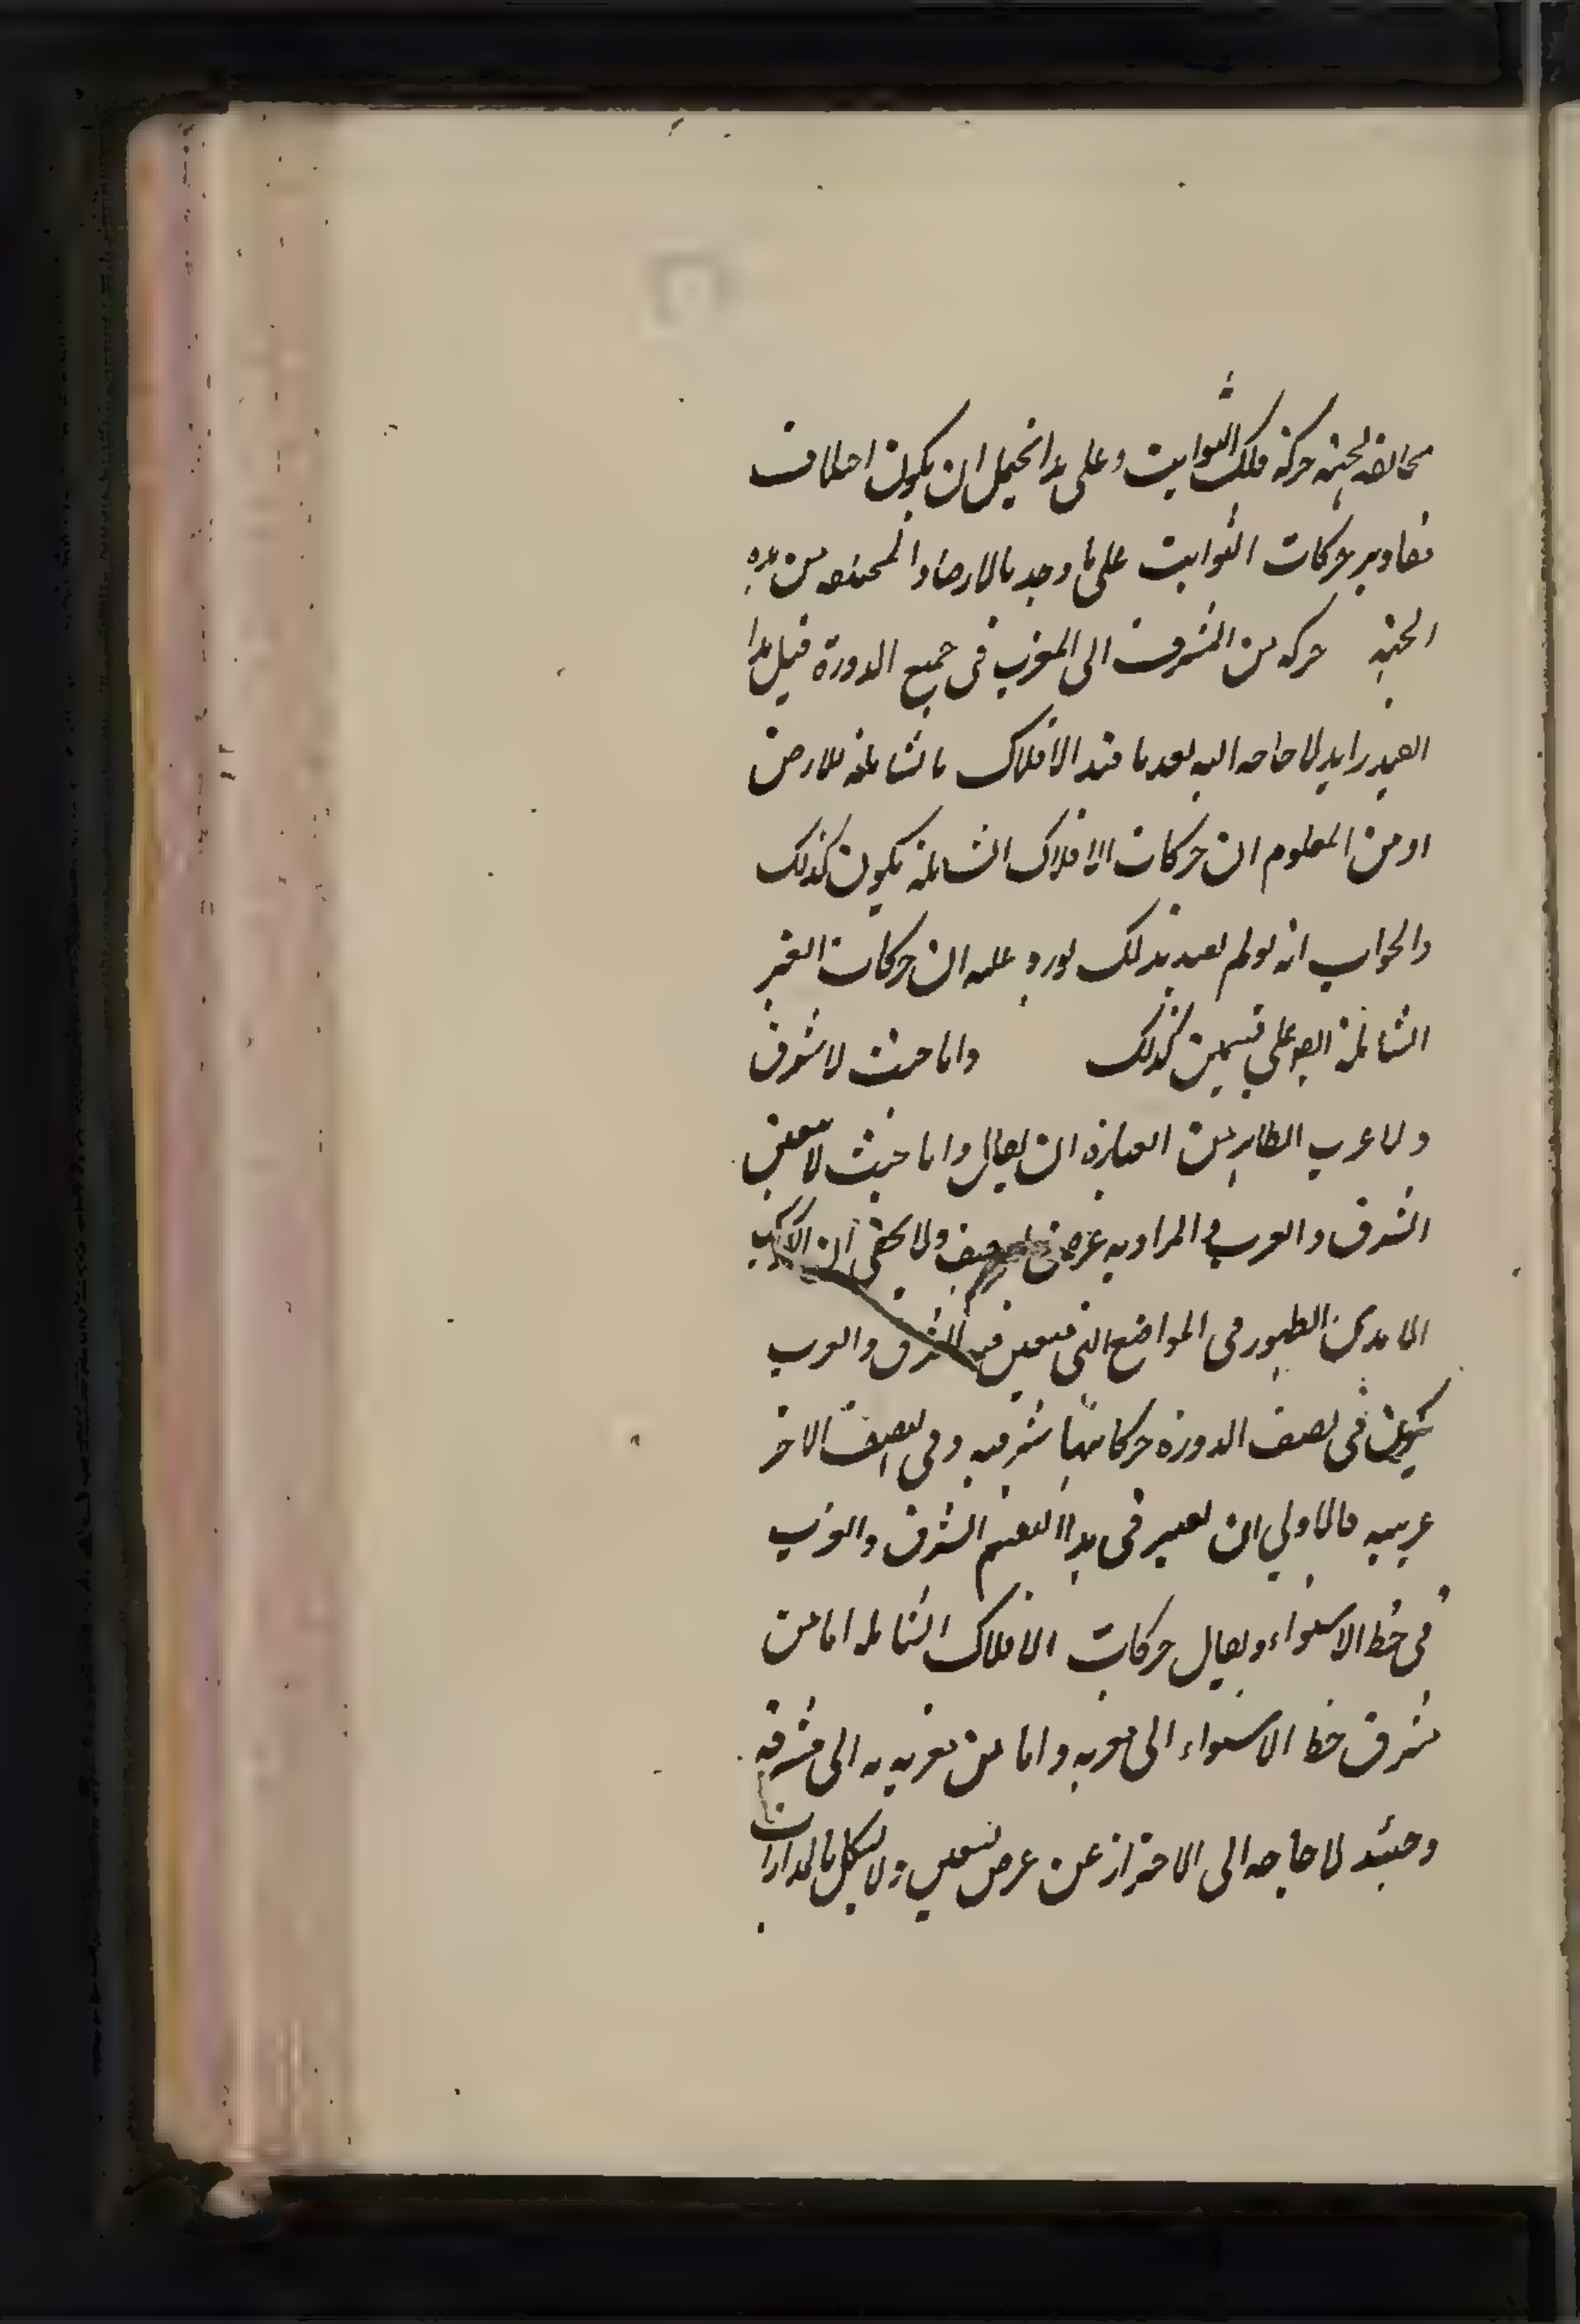 مخالفة لجهة حركة فلك الثوابت وعلى هذا يحتمل ان يكون اختلاف
مقادير حركات الثوابت على ما وجد بالارصاد المختلفة من هذه
الجهة حركه من المشرق الى المغرب فى جميع الدورة قيل هذا
القيد زايد لا حاجه اليه بعد ما قيد الافلاك بالشاملة للارض
اذ من المعلوم ان حركات الافلاك الشاملة يكون كذلك
والجواب انه لو لم يقيد بذلك لورد عليه ان حركات الغير
الشاملة ايضا على قسمين كذلك واما حيث لا شرق
ولا غرب الظاهر من العبارة ان يقال واما حيث لا يتعين
الشرق والغرب والمراد به عرض تسعين ولا يخفى ان الكواكب
الابدى الظهور فى المواضع التى يتعين فيه الشرق والغرب
يكون فى نصف الدورة حركاتها شرقيه وفى النصف الاخر
غربيه فالاولي ان يعتبر فى هذا التقسيم الشرق والغرب
فى خط الاستواء ويقال حركات الافلاك الشاملة اما من
شرق خط الاستواء الى مغربه واما من مغربه الى مشرقه
وحينئذ لا حاجه الى الاحتراز عن عرض تسعين ولا يشكل بالمدارات